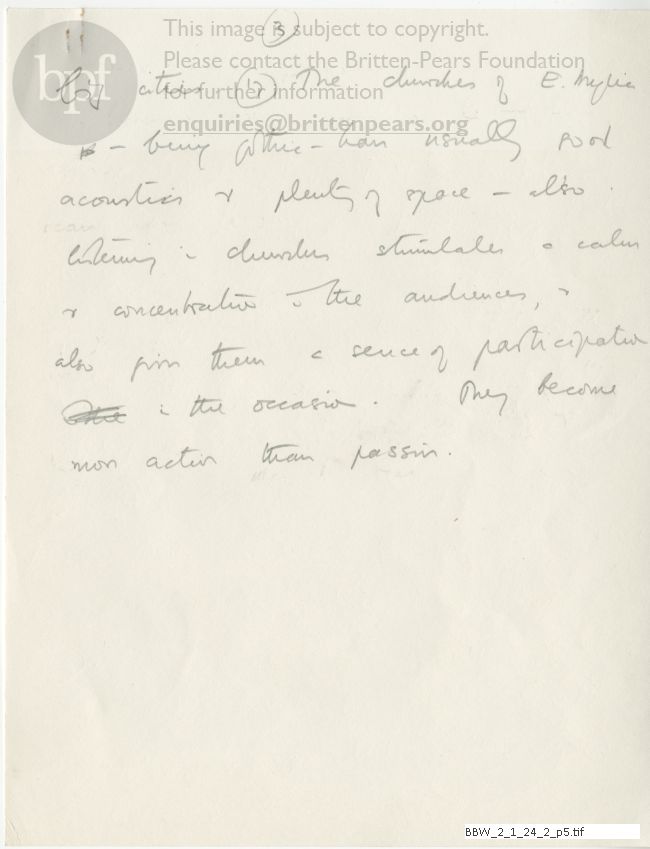 This image is subject to copyright.
3
bpf
Please contact the Britten-Pears Foundation
by critics (7) The churches of E. Anglia
for further information
enquiries@brittenpears.org
– being gothic – have usually good
acoustics & plenty of space – also
listening in churches stimulates a calm
& concentration in the audiences, &
also gives them a sense of participation
in the occasion. They become
more active than passive.
BBW_2_1_24_2_p5.tif